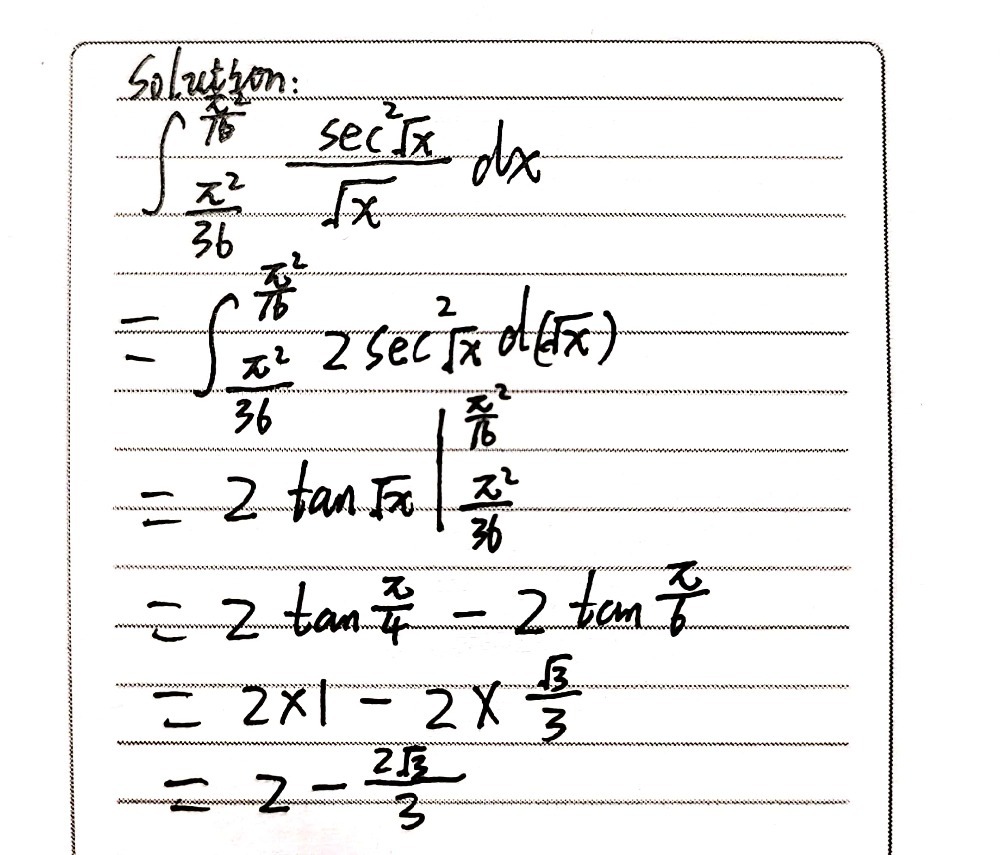 Solution:
∫_{π²/36}^{π²/16} sec²√x/√x dx
= ∫_{π²/36}^{π²/16} 2 sec²√x d(√x)
= 2 tan √x |_{π²/36}^{π²/16}
= 2 tan π/4 − 2 tan π/6
= 2×1 − 2× √3/3
= 2 − 2√3/3